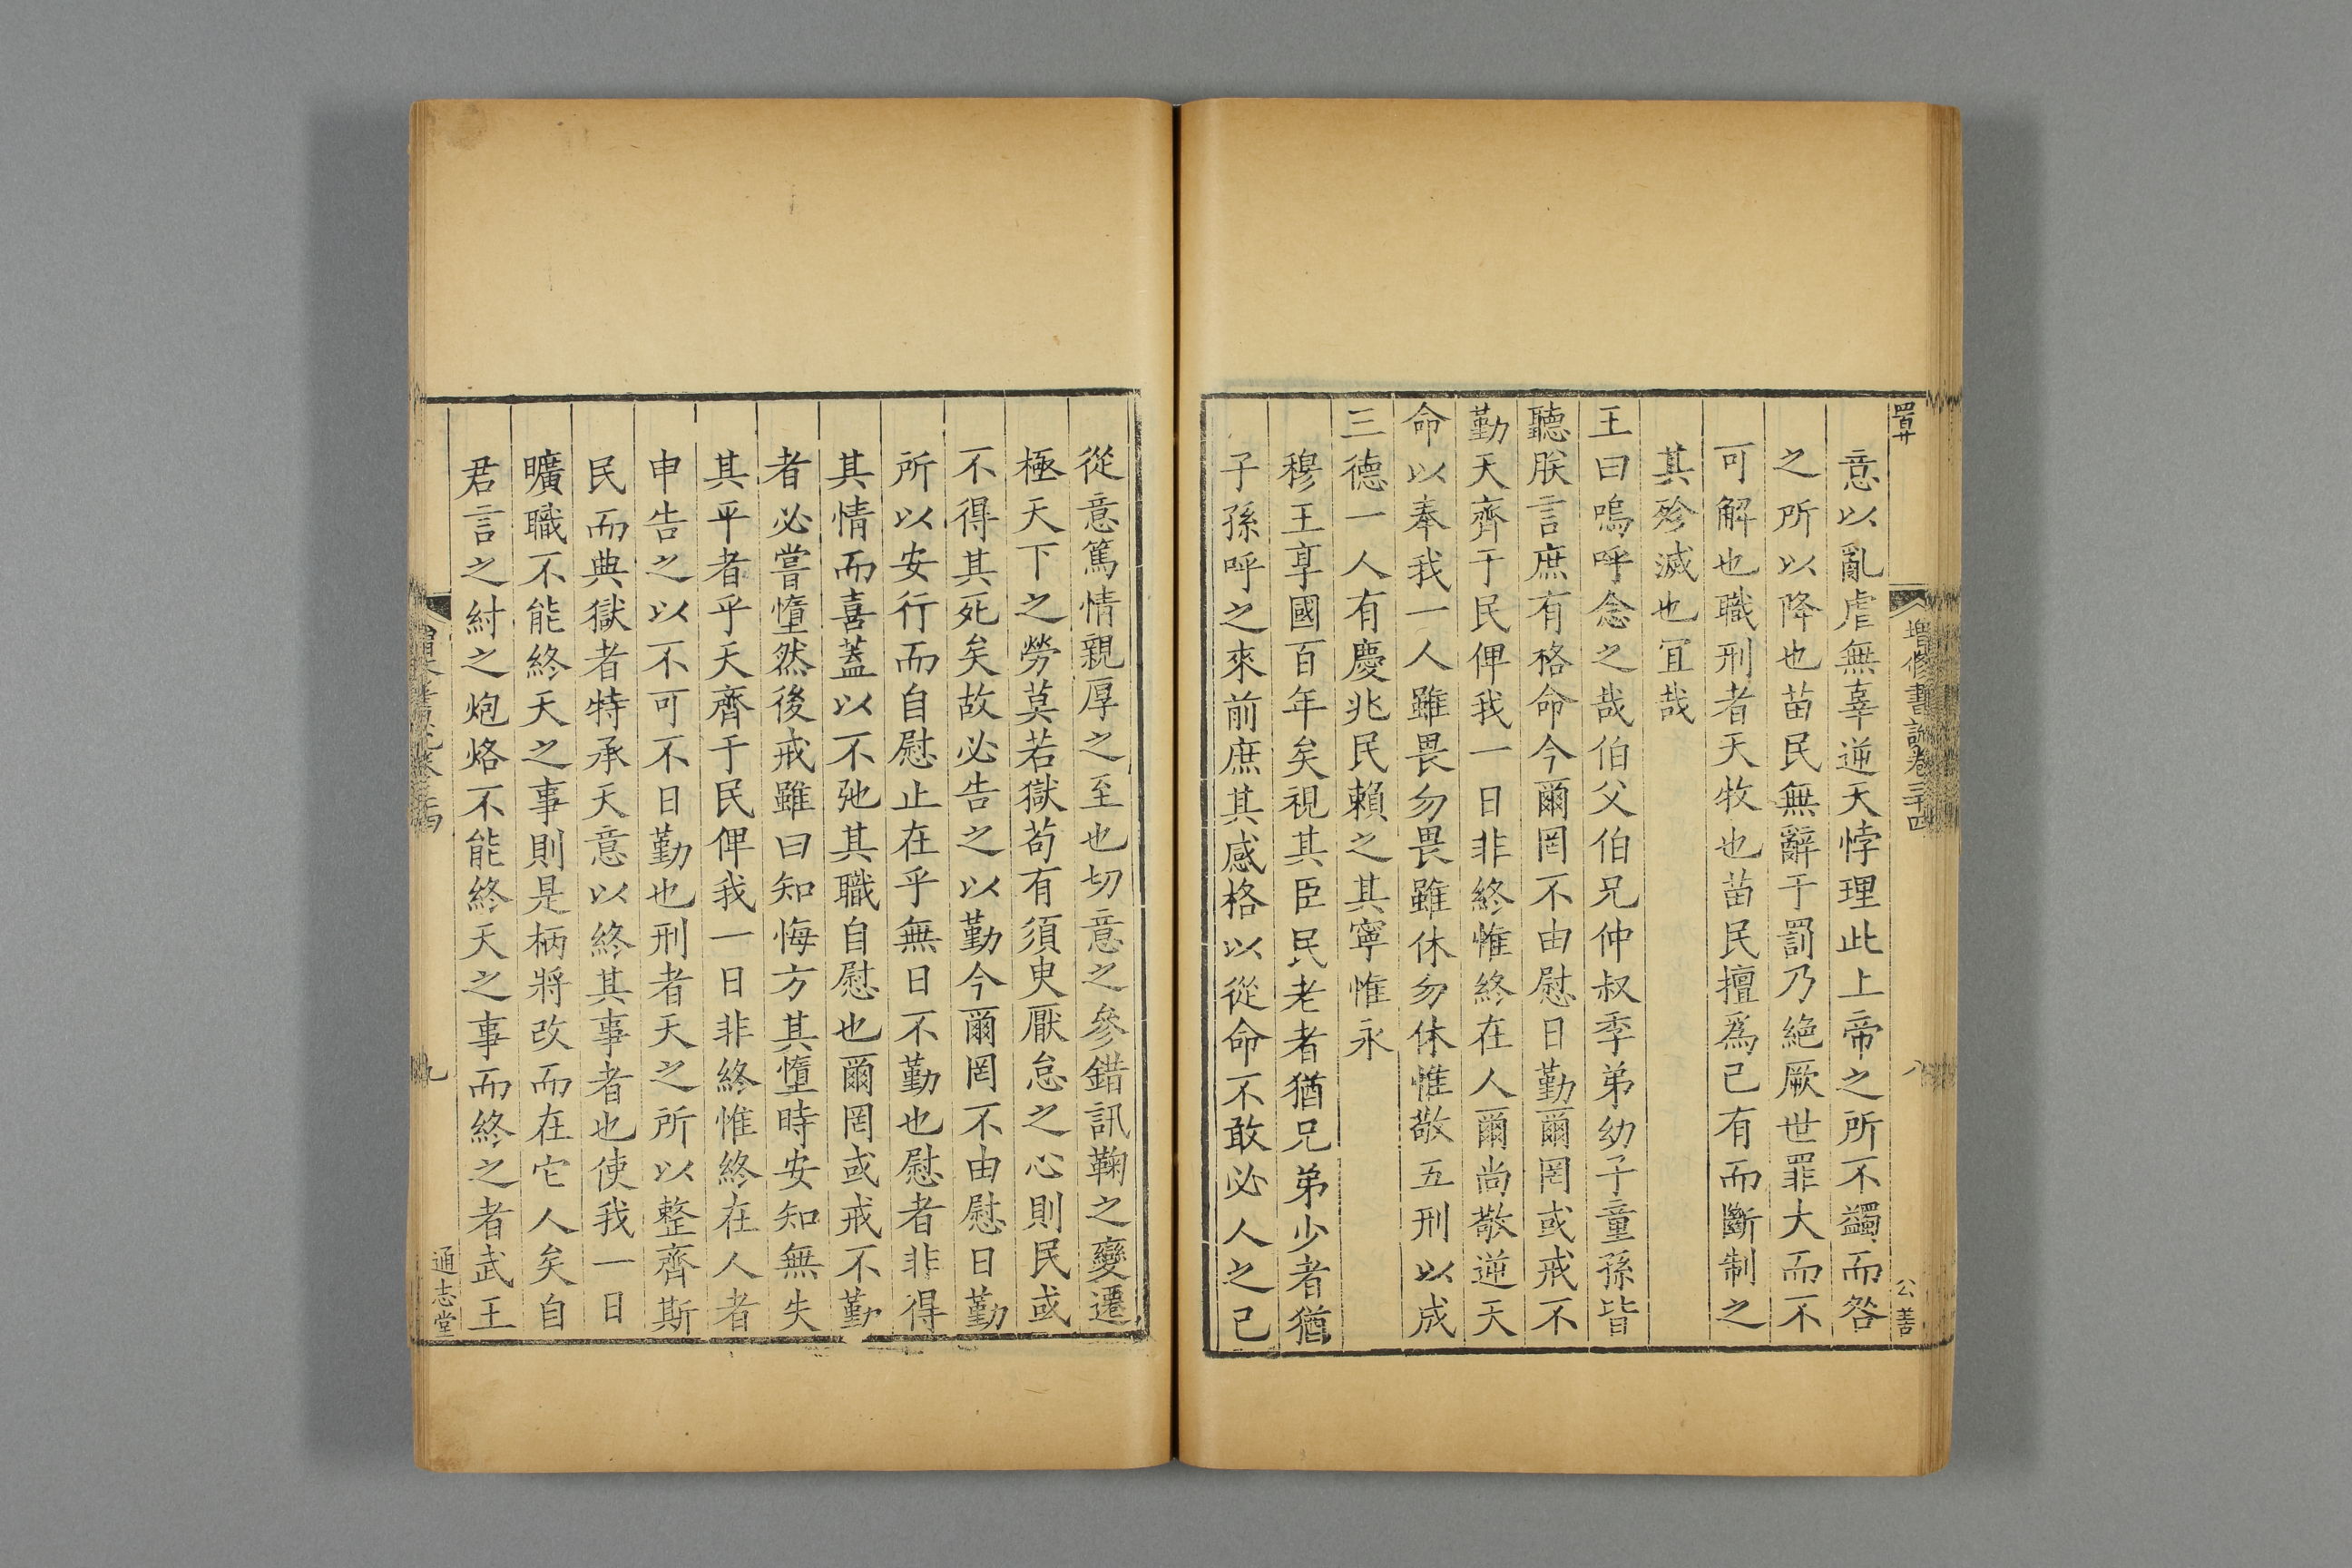 增修書說卷三十四
八
公善
意以亂虐無辜逆天悖理此上帝之所不蠲而咎
之所以降也苗民無辭于罰乃絕厥世罪大而不
可解也職刑者天牧也苗民擅爲己有而斷制之
其殄滅也宜哉
王曰嗚呼念之哉伯父伯兄仲叔季弟幼子童孫皆
聽朕言庶有格命今爾罔不由慰日勤爾罔或戒不
勤天齊于民俾我一日非終惟終在人爾尚敬逆天
命以奉我一人雖畏勿畏雖休勿休惟敬五刑以成
三德一人有慶兆民賴之其寧惟永
穆王享國百年矣視其臣民老者猶兄弟少者猶
子孫呼之來前庶其感格以從命不敢必人之己
從意篤情親厚之至也切意之參錯訊鞠之變遷
極天下之勞莫若獄苟有須臾厭怠之心則民或
不得其死矣故必告之以勤今爾罔不由慰日勤
所以安行而自慰止在乎無日不勤也慰者非得
其情而喜蓋以不弛其職自慰也爾罔或戒不勤
者必嘗惰然後戒雖曰知悔方其惰時安知無失
其平者乎天齊于民俾我一日非終惟終在人者
申告之以不可不日勤也刑者天之所以整齊斯
民而典獄者特承天意以終其事者也使我一日
曠職不能終天之事則是柄將改而在它人矣自
君言之紂之炮烙不能終天之事而終之者武王
九
通志堂